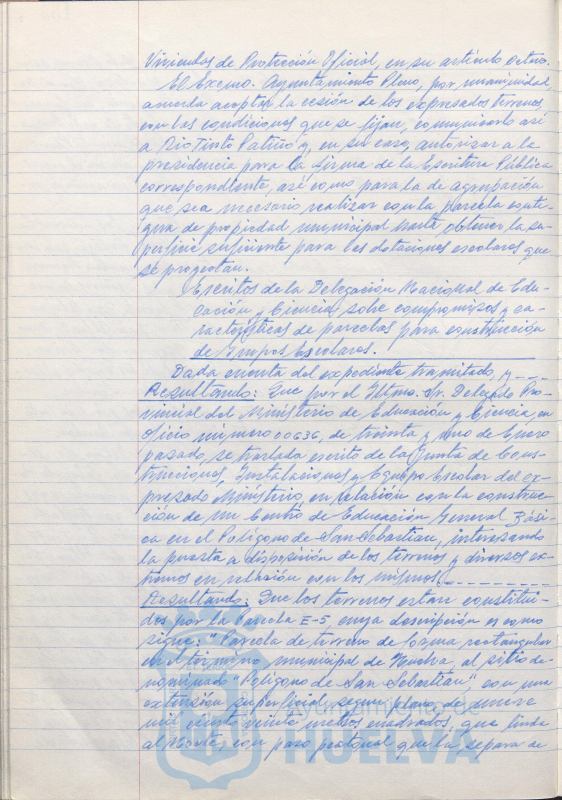 Viviendas de Protección Oficial, en su artículo octavo.
El Excmo. Ayuntamiento Pleno, por unanimidad,
acuerda aceptar la cesión de los expresados terrenos,
con las condiciones que se fijan, comunicarlo así
a Rio Tinto Patiño y, en su caso, autorizar a la
presidencia para la firma de la Escritura Pública
correspondiente, así como para la de agrupación
que sea necesario realizar con la parcela conti-
gua de propiedad municipal hasta obtener la su-
perficie suficiente para las dotaciones escolares que
se proyectan.
Escritos de la Delegación Nacional de Edu-
cación y Ciencia, sobre compromisos y ca-
racterísticas de parcelas para construcción
de Grupos Escolares.
Dada cuenta del expediente tramitado, y
Resultando: Que por el Iltmo. Sr. Delegado Pro-
vincial del Ministerio de Educación y Ciencia, en
oficio número 00636, de treinta y uno de Enero
pasado, se traslada escrito de la Junta de Cons-
trucciones, Instalaciones y Equipo Escolar del ex-
presado Ministerio, en relación con la construc-
ción de un Centro de Educación General Bási-
ca en el Polígono de San Sebastian, interesando
la puesta a disposición de los terrenos y diversos ex-
tremos en relación con los mismos.
Resultando: Que los terrenos estan constitui-
dos por la Parcela E-5, cuya descripción es como
sigue: "Parcela de terreno de forma rectangular
en el término municipal de Huelva, al sitio de-
nominado "Polígono de San Sebastian", con una
extensión superficial, segun plano, de nueve
mil ciento veinte metros cuadrados, que linda
al Norte, con paso peatonal que la separa de
HUELVA